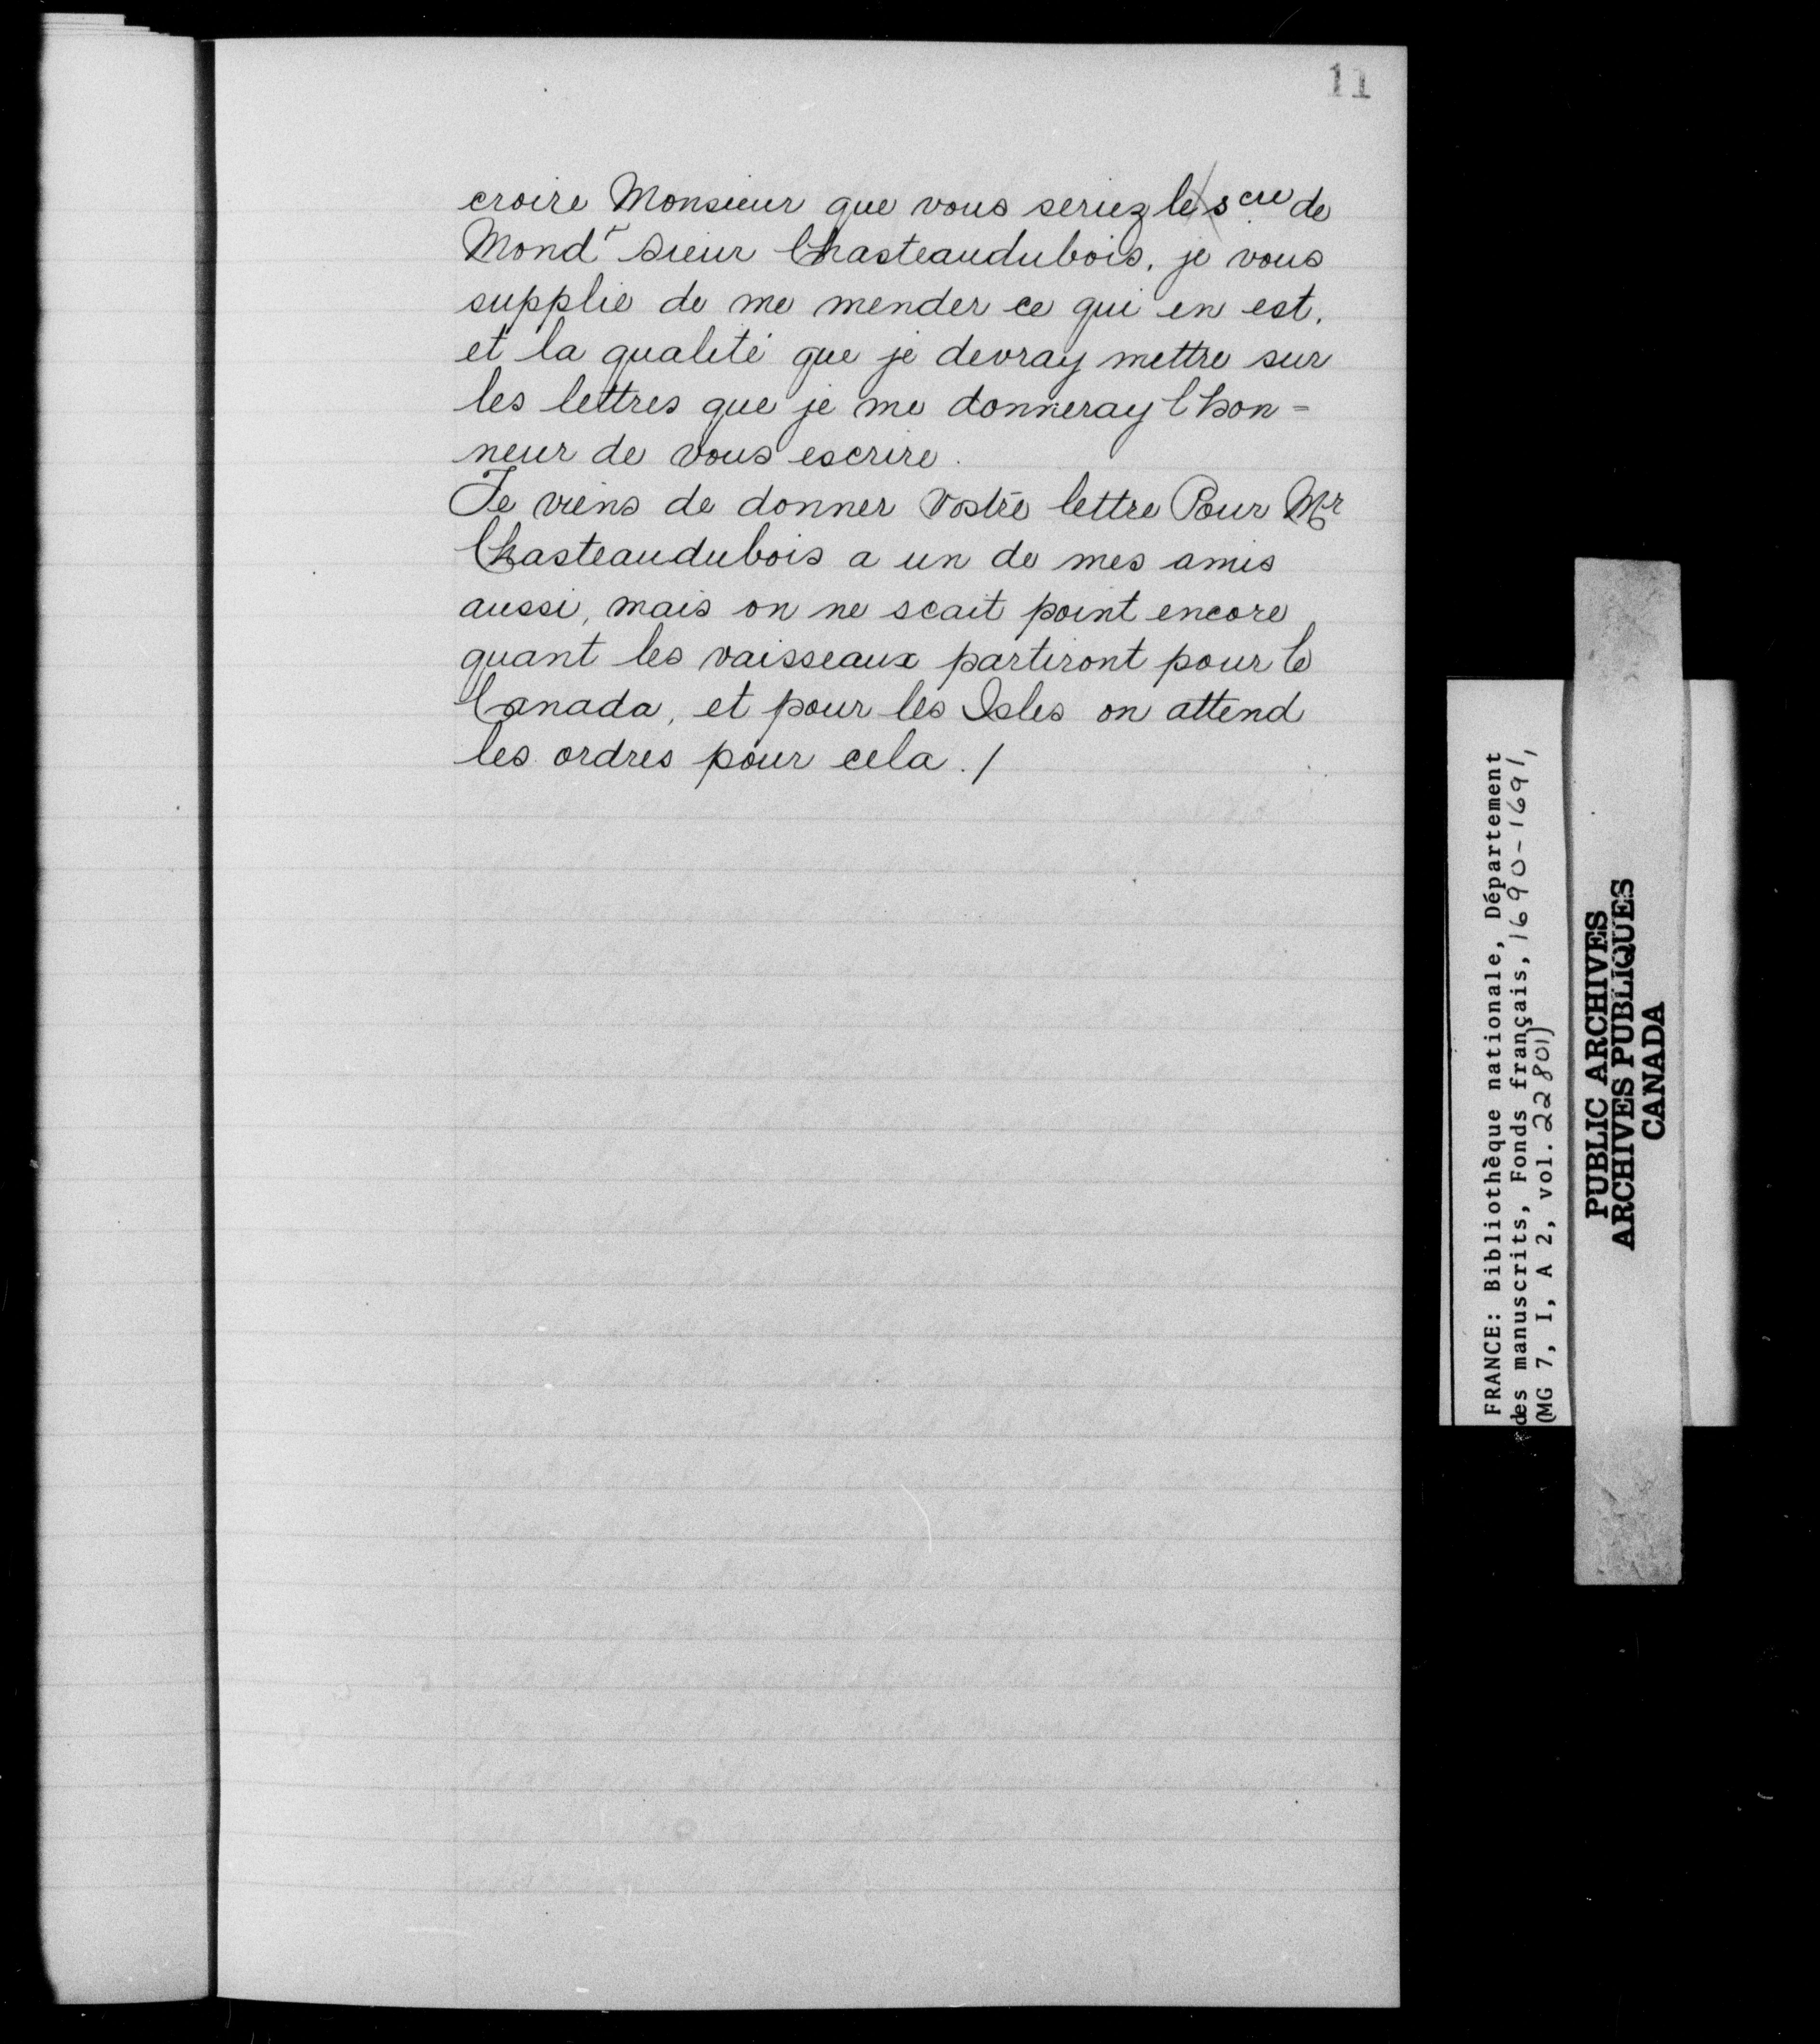 11
croire Monsieur que vous seriez le scre de
Mondt sieur Chasteaudubois, je vous
supplie de me mender ce qui en est,
et la qualité que je devray mettre sur
les lettres que je me donneray l hon=
neur de vous escrire.
Je viens de donner vostre lettre Pour Mr
Chasteaudubois a un de mes amis
aussi, mais on ne scait point encore
quant les vaisseaux partiront pour le
Canada, et pour les Isles on attend
les ordres pour cela./
FRANCE: Bibliothèque nationale, Département
des manuscrits, Fonds français, 1690-1691,
(MG 7, I, A 2, vol. 22801)
PUBLIC ARCHIVES
ARCHIVES PUBLIQUES
CANADA